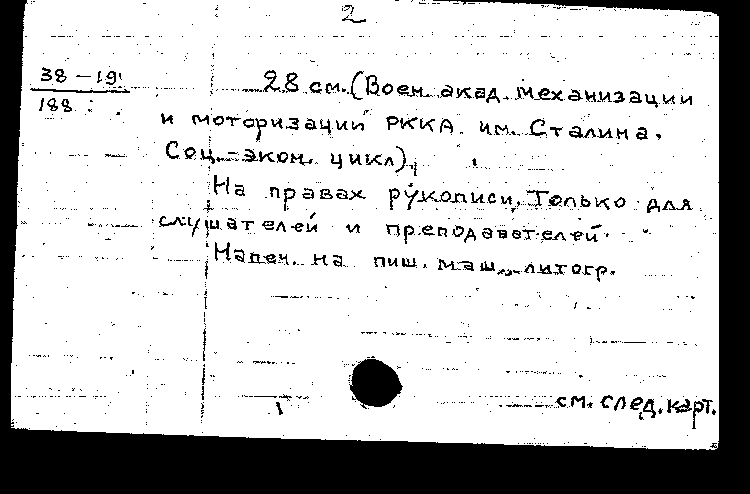 2
38-19
188
28 см. (Воен. акад. механизации
и моторизации РККА им. Сталина.
Соц.-экон. цикл).
На правах рукописи. Только для
слушателей и преподавателей.
Напеч. на пиш. маш., литогр.
см. след. карт.